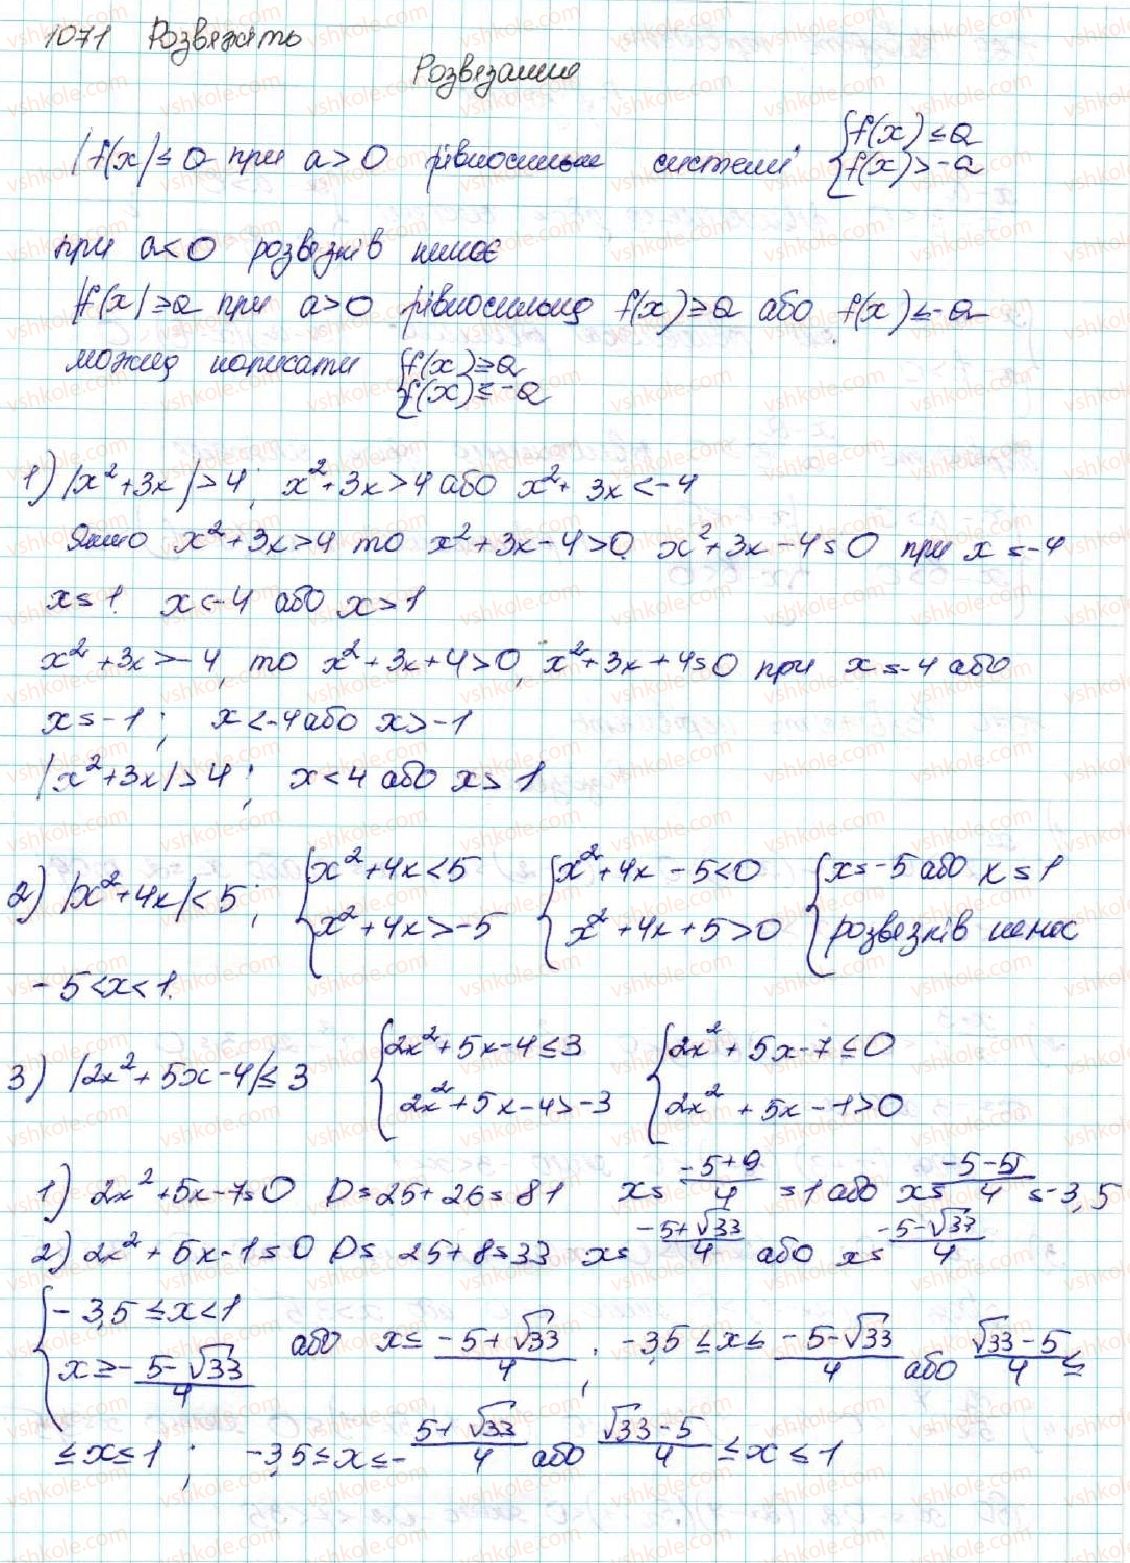 1071 Розвяжіть
Розвязання
|f(x)| ≤ a при a > 0 рівносильне системі {f(x) ≤ a
{f(x) > -a
при a < 0 розвязків немає
|f(x)| ≥ a при a > 0 рівносильно f(x) ≥ a або f(x) ≤ -a
можна написати {f(x) ≥ a
{f(x) ≤ -a
1) |x² + 3x| > 4; x² + 3x > 4 або x² + 3x < -4
Якщо x² + 3x > 4 то x² + 3x - 4 > 0 x² + 3x - 4 = 0 при x = -4
x = 1. x < -4 або x > 1
x² + 3x > -4, то x² + 3x + 4 > 0, x² + 3x + 4 = 0 при x = -4 або
x = -1; x < -4 або x > -1
|x² + 3x| > 4; x < 4 або x > 1
2) |x² + 4x| < 5; {x² + 4x < 5 {x² + 4x - 5 < 0 {x = -5 або x = 1
{x² + 4x > -5 {x² + 4x + 5 > 0 {розвязків немає
-5 < x < 1.
3) |2x² + 5x - 4| ≤ 3 {2x² + 5x - 4 ≤ 3 {2x² + 5x - 7 ≤ 0
{2x² + 5x - 4 > -3 {2x² + 5x - 1 > 0
1) 2x² + 5x - 7 = 0 D = 25 + 26 = 81 x = (-5+9)/4 = 1 або x = (-5-9)/4 = -3,5
2) 2x² + 5x - 1 = 0 D = 25 + 8 = 33 x = (-5+√33)/4 або x = (-5-√37)/4
{-3,5 ≤ x < 1
{x ≥ -(5-√33)/4 або x ≤ (-5+√33)/4; -3,5 ≤ x ≤ (-5-√33)/4 або (√33-5)/4 ≤
≤ x ≤ 1; -3,5 ≤ x ≤ -(5+√33)/4 або (√33-5)/4 ≤ x ≤ 1
vshkole.com